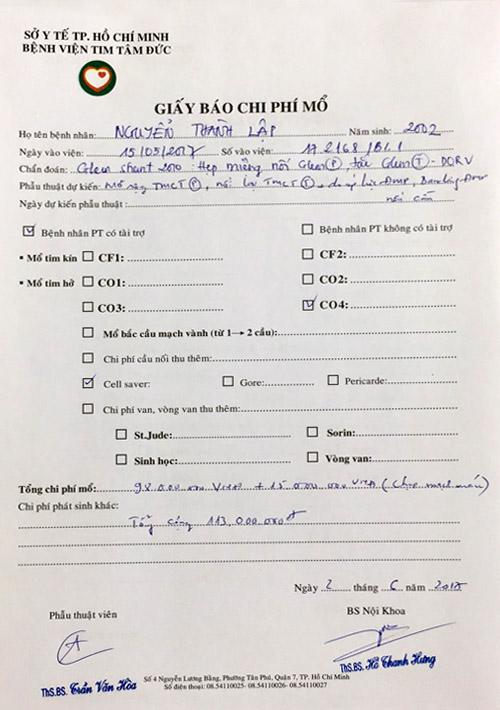 SỞ Y TẾ TP. HỒ CHÍ MINH
BỆNH VIỆN TIM TÂM ĐỨC
GIẤY BÁO CHI PHÍ MỔ
Họ tên bệnh nhân: NGUYỄN THÀNH LẬP Năm sinh: 2002
Ngày vào viện: 15/05/2017 Số vào viện: 17.2168/B1.1
Chẩn đoán: Glenn shunt 2010: Hẹp miệng nối Glenn (P), tắc Glenn (T) - DORV
Phẫu thuật dự kiến: Mổ TMCT (P), nối lại TMCT (T)
Ngày dự kiến phẫu thuật:
☑ Bệnh nhân PT có tài trợ ☐ Bệnh nhân PT không có tài trợ
▪ Mổ tim kín ☐ CF1: ☐ CF2:
▪ Mổ tim hở ☐ CO1: ☐ CO2:
☐ CO3: ☑ CO4:
☐ Mổ bắc cầu mạch vành (từ 1→ 2 cầu):
☐ Chi phí cầu nối thu thêm:
☑ Cell saver: ☐ Gore: ☐ Pericarde:
☐ Chi phí van, vòng van thu thêm:
☐ St.Jude: ☐ Sorin:
☐ Sinh học: ☐ Vòng van:
Tổng chi phí mổ: 98.000.000 VNĐ + 15.000.000 VNĐ (Chụp mạch máu)
Chi phí phát sinh khác:
Tổng cộng 113.000.000đ
Ngày 2 tháng 6 năm 2017
Phẫu thuật viên BS Nội Khoa
ThS.BS. Trần Văn Hòa ThS.BS. Hồ Thanh Hưng
Số 4 Nguyễn Lương Bằng, Phường Tân Phú, Quận 7, TP. Hồ Chí Minh
Số điện thoại: 08.54110025- 08.54110026- 08.54110027